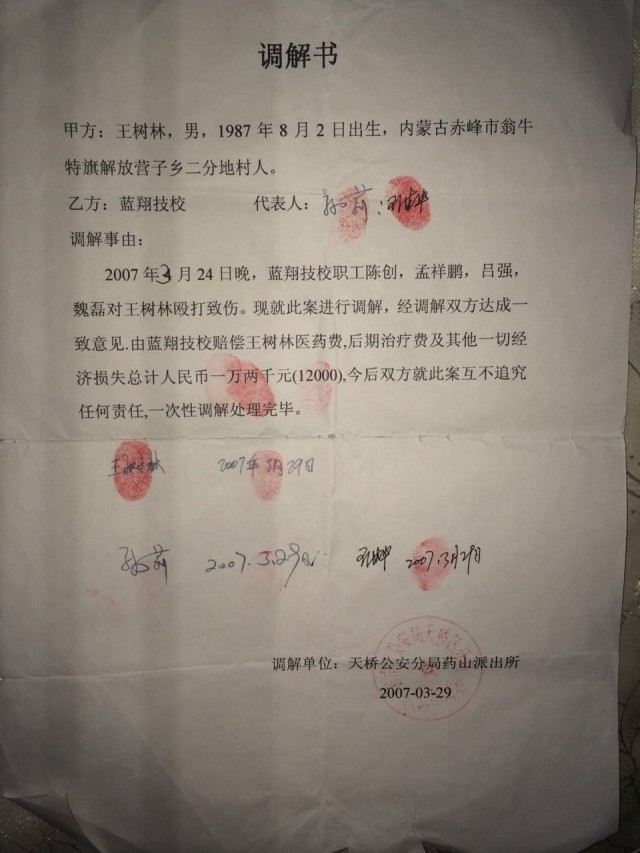 调解书
甲方：王树林，男，1987年8月2日出生，内蒙古赤峰市翁牛
特旗解放营子乡二分地村人。
乙方：蓝翔技校 代表人：
调解事由：
2007年3月24日晚，蓝翔技校职工陈创，孟祥鹏，吕强，
魏磊对王树林殴打致伤。现就此案进行调解，经调解双方达成一
致意见.由蓝翔技校赔偿王树林医药费,后期治疗费及其他一切经
济损失总计人民币一万两千元(12000),今后双方就此案互不追究
任何责任,一次性调解处理完毕。
王树林 2007年3月29日
2007.3.29日 2007.3月29日
调解单位：天桥公安分局药山派出所
2007-03-29